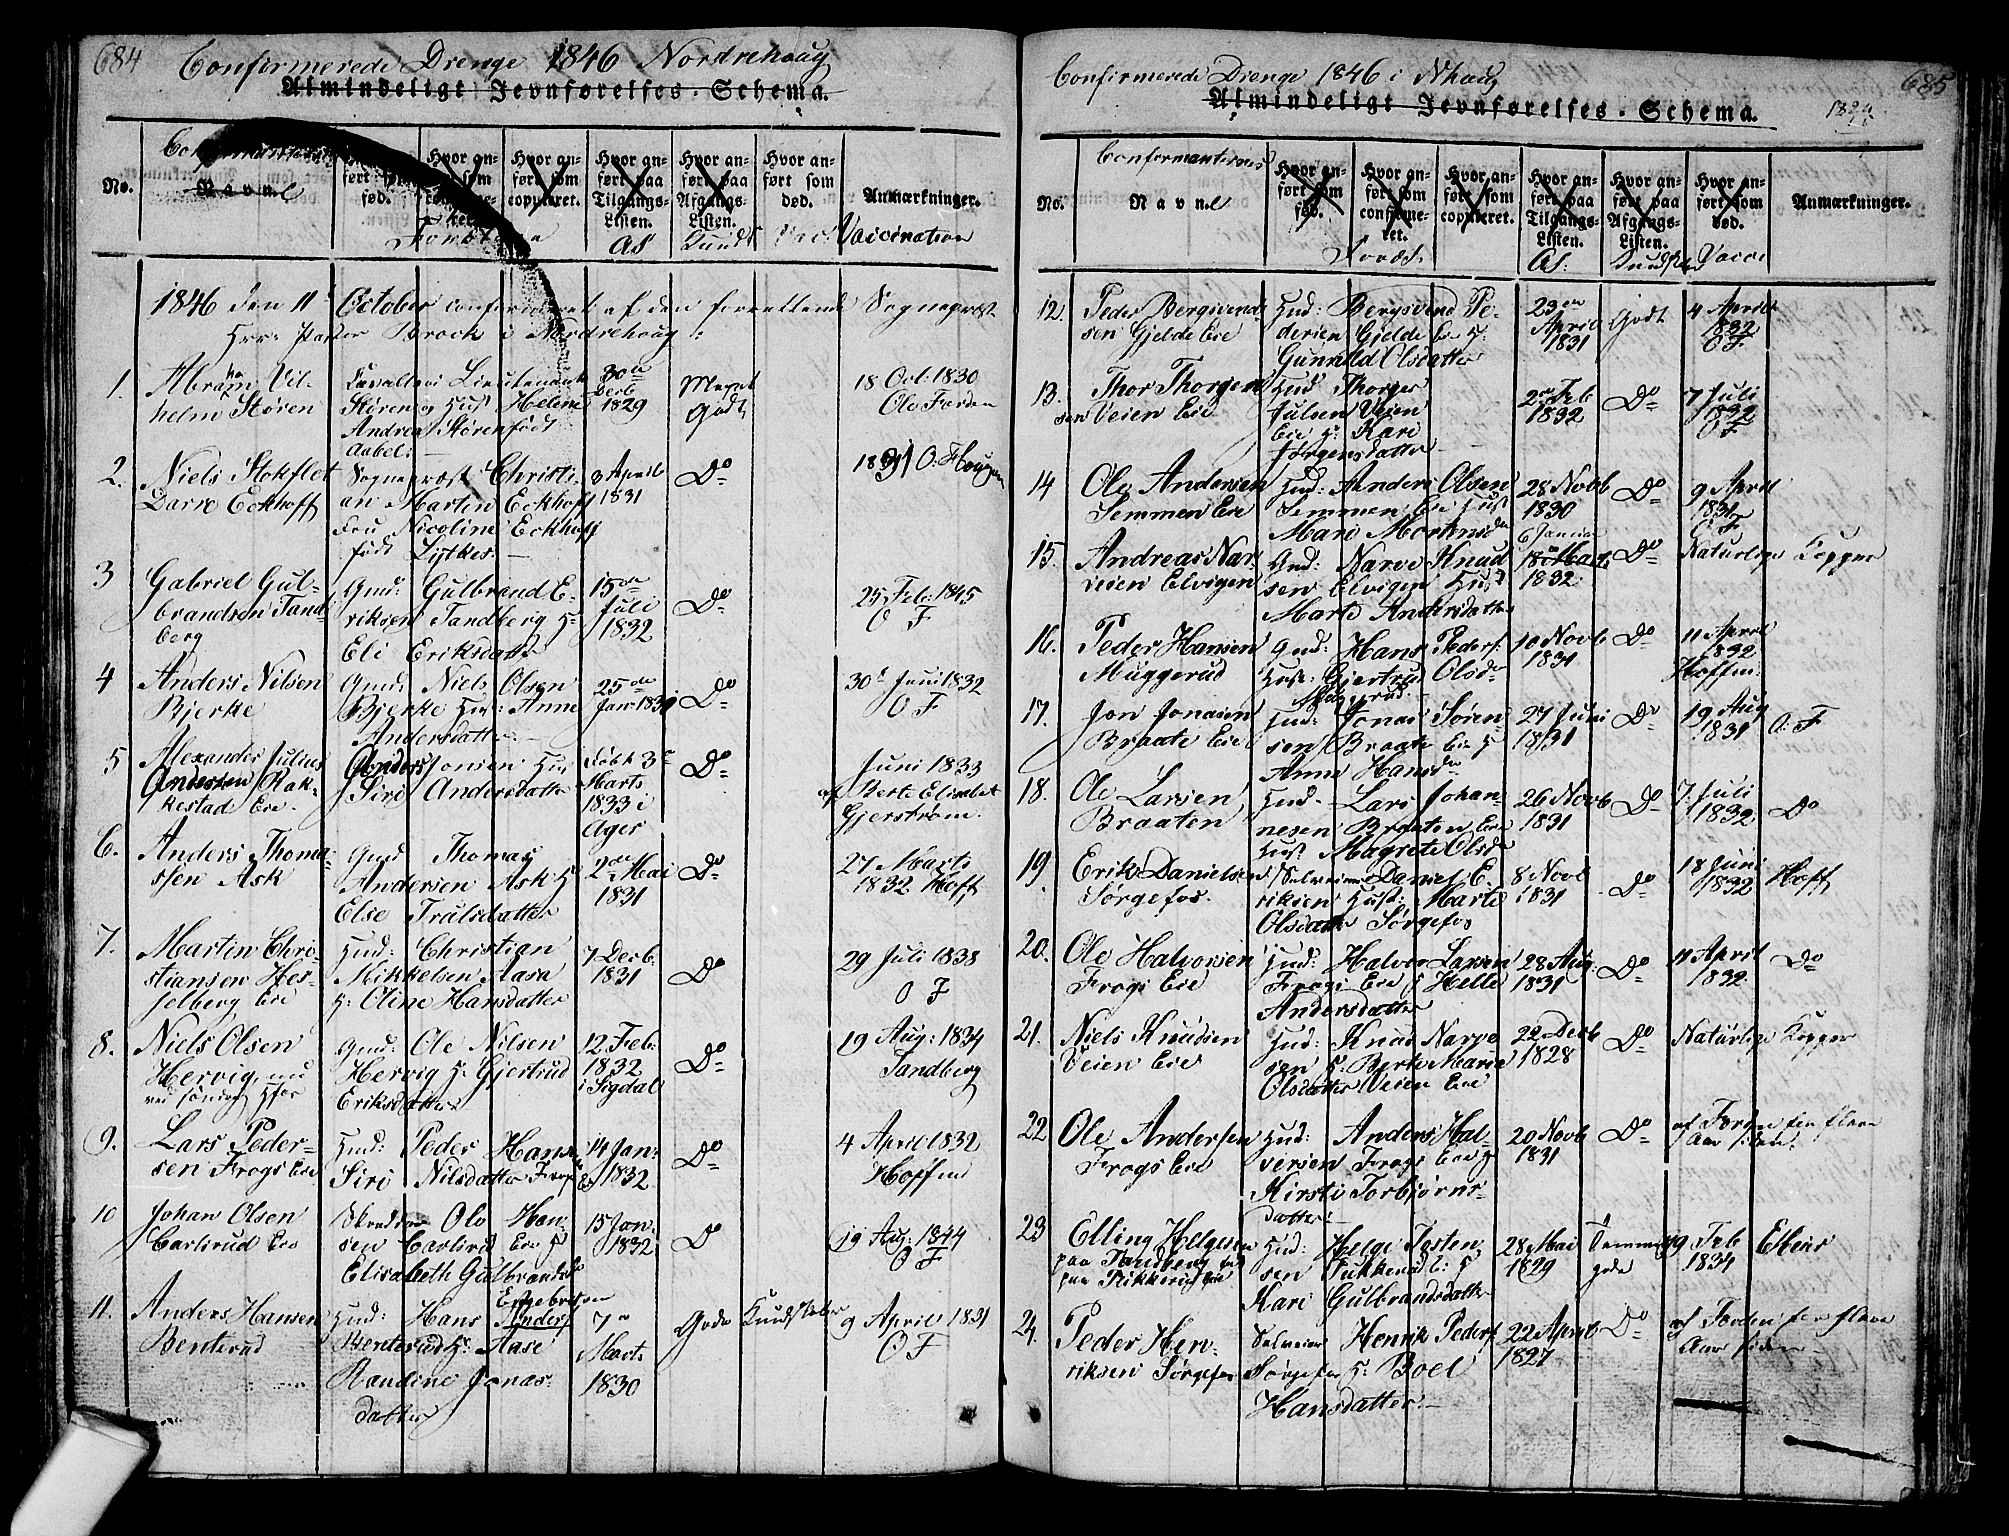 684
Conformerede Drenge 1846 Nordrehoug
Almindeligt Jevnførelses-Schema.
No.
Navne
ført som
fød.
Hvor an-
ført som
Hvor an-
ført som
copuleret.
Hvor an-
ført paa
Tilgangs-
Listen.
Hvor an-
ført paa
Afgangs-
Listen.
Hvor an-
ført som
død.
Anmærkninger.
Vaccination
1846 den 11te October conformeret af den forrettende Sognepræst
Herr Pastor Brock i Nordrehoug:
1. Abraham Vil-
helm Støren
Cavalleri Lieutenant
Støren og Hust Helene
Andrea Støren født
Aabel:
30te
Decb
1829
Meget
Godt
18 Oct: 1830
Ole Forden
2. Niels Stokflet
Darre Eckhoff
Sognepræst Christi-
an Martin Eckhoff
Fru Nicoline Eckhoff
født Lytkes.
3 April
1831
Do
1831 O: Hougen
3 Gabriel Gul-
brandsen Tand-
berg
Gmd: Gulbrand E-
riksen Tandberg H:
Eli Eriksdatter
15de
Juli
1832
Do
25 Feb: 1845
O F
4 Anders Nilsen
Bjerke
Gmd: Niels Olsen
Bjerke Hus: Anne
Andersdatter.
25de
Jan: 1831
Do
30te Juni 1832
O F
5 Alexander Julius
Andersen Rak-
kestad Eie.
Anders Jonsen Hus
Siri Andersdatter
Døbt 3de
Marts
1833 i
Ager
Do
Juni 1833
af Berte Elisabet
Gjerstrøm.
6. Anders Thoma-
ssen Ask
Gmd Thomas
Andersen Ask H:
Else Trulsdatter
2den Mai
1831
Do
27 Marts
1832 Hoff
7. Martin Chri-
stiansen Hes-
selberg Eie
Hud: Christian
Mikkelsen Aasa
H: Oline Hansdatter
7 Decb:
1831
Do
29 Juli 1838
O F
8. Niels Olsen
Hervig, nu
Gmd: Ole Nilsen
Hervig H: Gjertrud
Eriksdatter
12 Feb:
1832
i Sigdal
Do
19 Aug: 1834
Tandberg
9. Lars Peder-
sen Frogs Eie
Hud: Peder Hans:
Siri Nilsdatter Frogs E:
14 Jan:
1832
Do
4 April 1832
Hoffen
10 Johan Olsen
Carlsrud Eie
Ole Han-
sen Carlsrud Eie H
Elisabeth Gulbrandsd
15 Jan:
1832
Do
19 Aug: 1844
O F
11. Anders Hansen
Benterud
Hud: Hans Engebretsen
Anders:
Benterud H: Aase
Randine Jonas-
datter
7de
Marts
1830
Gode Kundskaber
9 April 1831
O F
685
Conformerede Drenge 1846 i Nhoug
Almindeligt Jevnførelses-Schema.
No.
Conformanternes
Navne
Hvor an-
ført som
fød.
Hvor an-
ført som
confirme-
ret.
Hvor an-
ført som
copuleret.
Hvor an-
ført paa
Tilgangs-
Listen.
Hvor an-
ført paa
Afgangs-
Listen.
Hvor an-
ført som
død.
Anmærkninger.
12. Peder Bergsvend-
sen Gjelde Eie
Hud: Bergsvend Pe-
dersen Gjelde E: H:
Gunnild Olsdatter
23de
April
1831
Godt
4 April
1832
O F
13. Thor Thorgers-
sen Veien Eie
Hud Thorger
Julsen Veien
Eie H: Kari
Jørgensdatter
2den Feb
1832
Do
7 Juli
1832
O F
14 Ole Andersen
Semmen Eie
Hud: Anders Olsen
Semmen Eie Hust
Mari Mortensd
28 Novb
1830
Do
9 April
1831
O F
15. Andreas Nar-
vesen Elvigen
Gmd: Narve Knud-
sen Elvigen Hust
Marte Andersdatter
6 Januar
18 Marts
1832
Do
Naturlige Kopper
16. Peder Hansen
Muggerud
Gmd: Hans Peders:
Hust: Gjertrud Olsd
Muggerud.
10 Novb
1831
Do
11 April
1832
Hoffen:
17. Jon Jonasen
Braate Eie
Hud: Jonas Søren-
sen Braate Eie H
Anne Hansd
27 Juni
1831
Do
19 Aug
1831
O: F
18. Ole Larsen
Braaten
Hud: Lars Johan-
nesen Braaten Eie
Hust Magrete Olsd
26 Novb
1831
Do
7. Juli
1832.
Do
19. Erik Danielsen
Sørgefos.
Selveier Daniel E-
riksen Hust: Marte
Olsdatter Sørgefos
8 Novb
1831
Do
18 Juni
1832
Hoff
20. Ole Halvorsen
Frogs Eie
Hud: Halvor Larsen
Frogs Eie H Helle
Andersdatter
28 Aug.
1831
Do
11 April
1832
Do
21. Niels Knudsen
Veien Eie
Hud: Knud Narve-
sen H: Berte Marie
Olsdatter Veien Eie
22 Decb
1828
Do
Naturlige Kopper
22 Ole Andersen
Frogs Eie
Hud: Anders Hal-
versen Frogs Eie H
Kirsti Torbjørns-
datter:
20 Novb
1831
Do
af Forden for flere
Aar siden.
23 Elling Helgesen
paa Tandberg
Hud: Helge Josten-
sen Pukkerud E: H
Kari Gulbrandsdatter
28 Mai
1829
Temmelig
gode
19 Feb
1834
24. Peder Hen-
riksen Sørgefos
Selveier Henrik Peders:
Sørgefos H: Boel
Hansdatter.
22 April
1827
Do
af Forden for flere
Aar siden